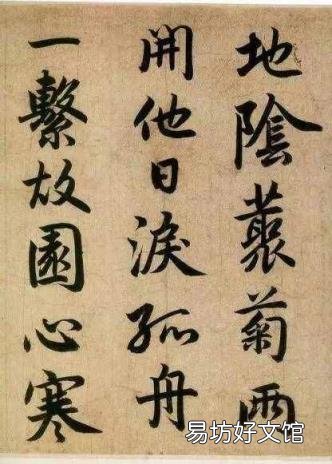 地陰藂菊兩
開他日淚孤舟
一繫故園心寒
易坊好文馆